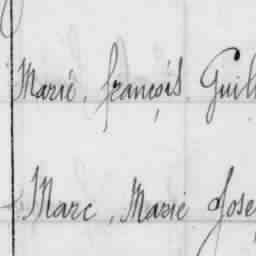 Marie, françois, Guil
Marc, Marie Jose